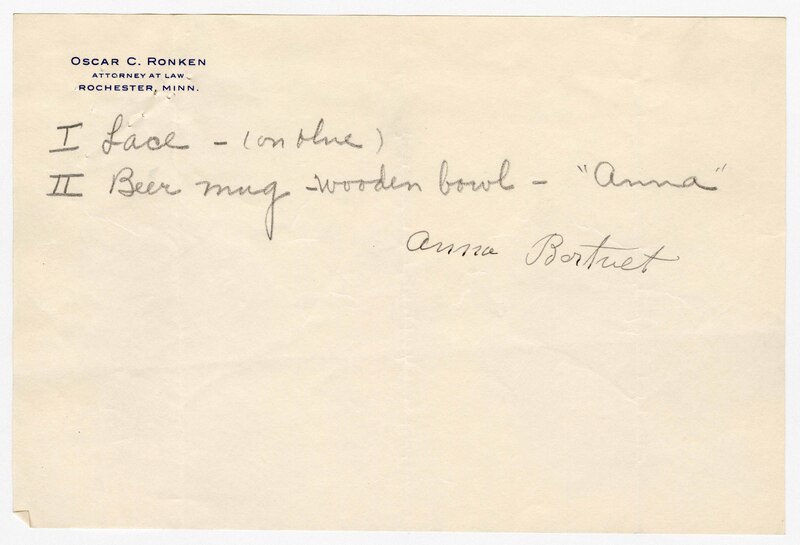 OSCAR C. RONKEN
ATTORNEY AT LAW
ROCHESTER, MINN.
I Lace - (on blue)
II Beer mug - wooden bowl - "Anna"
Anna